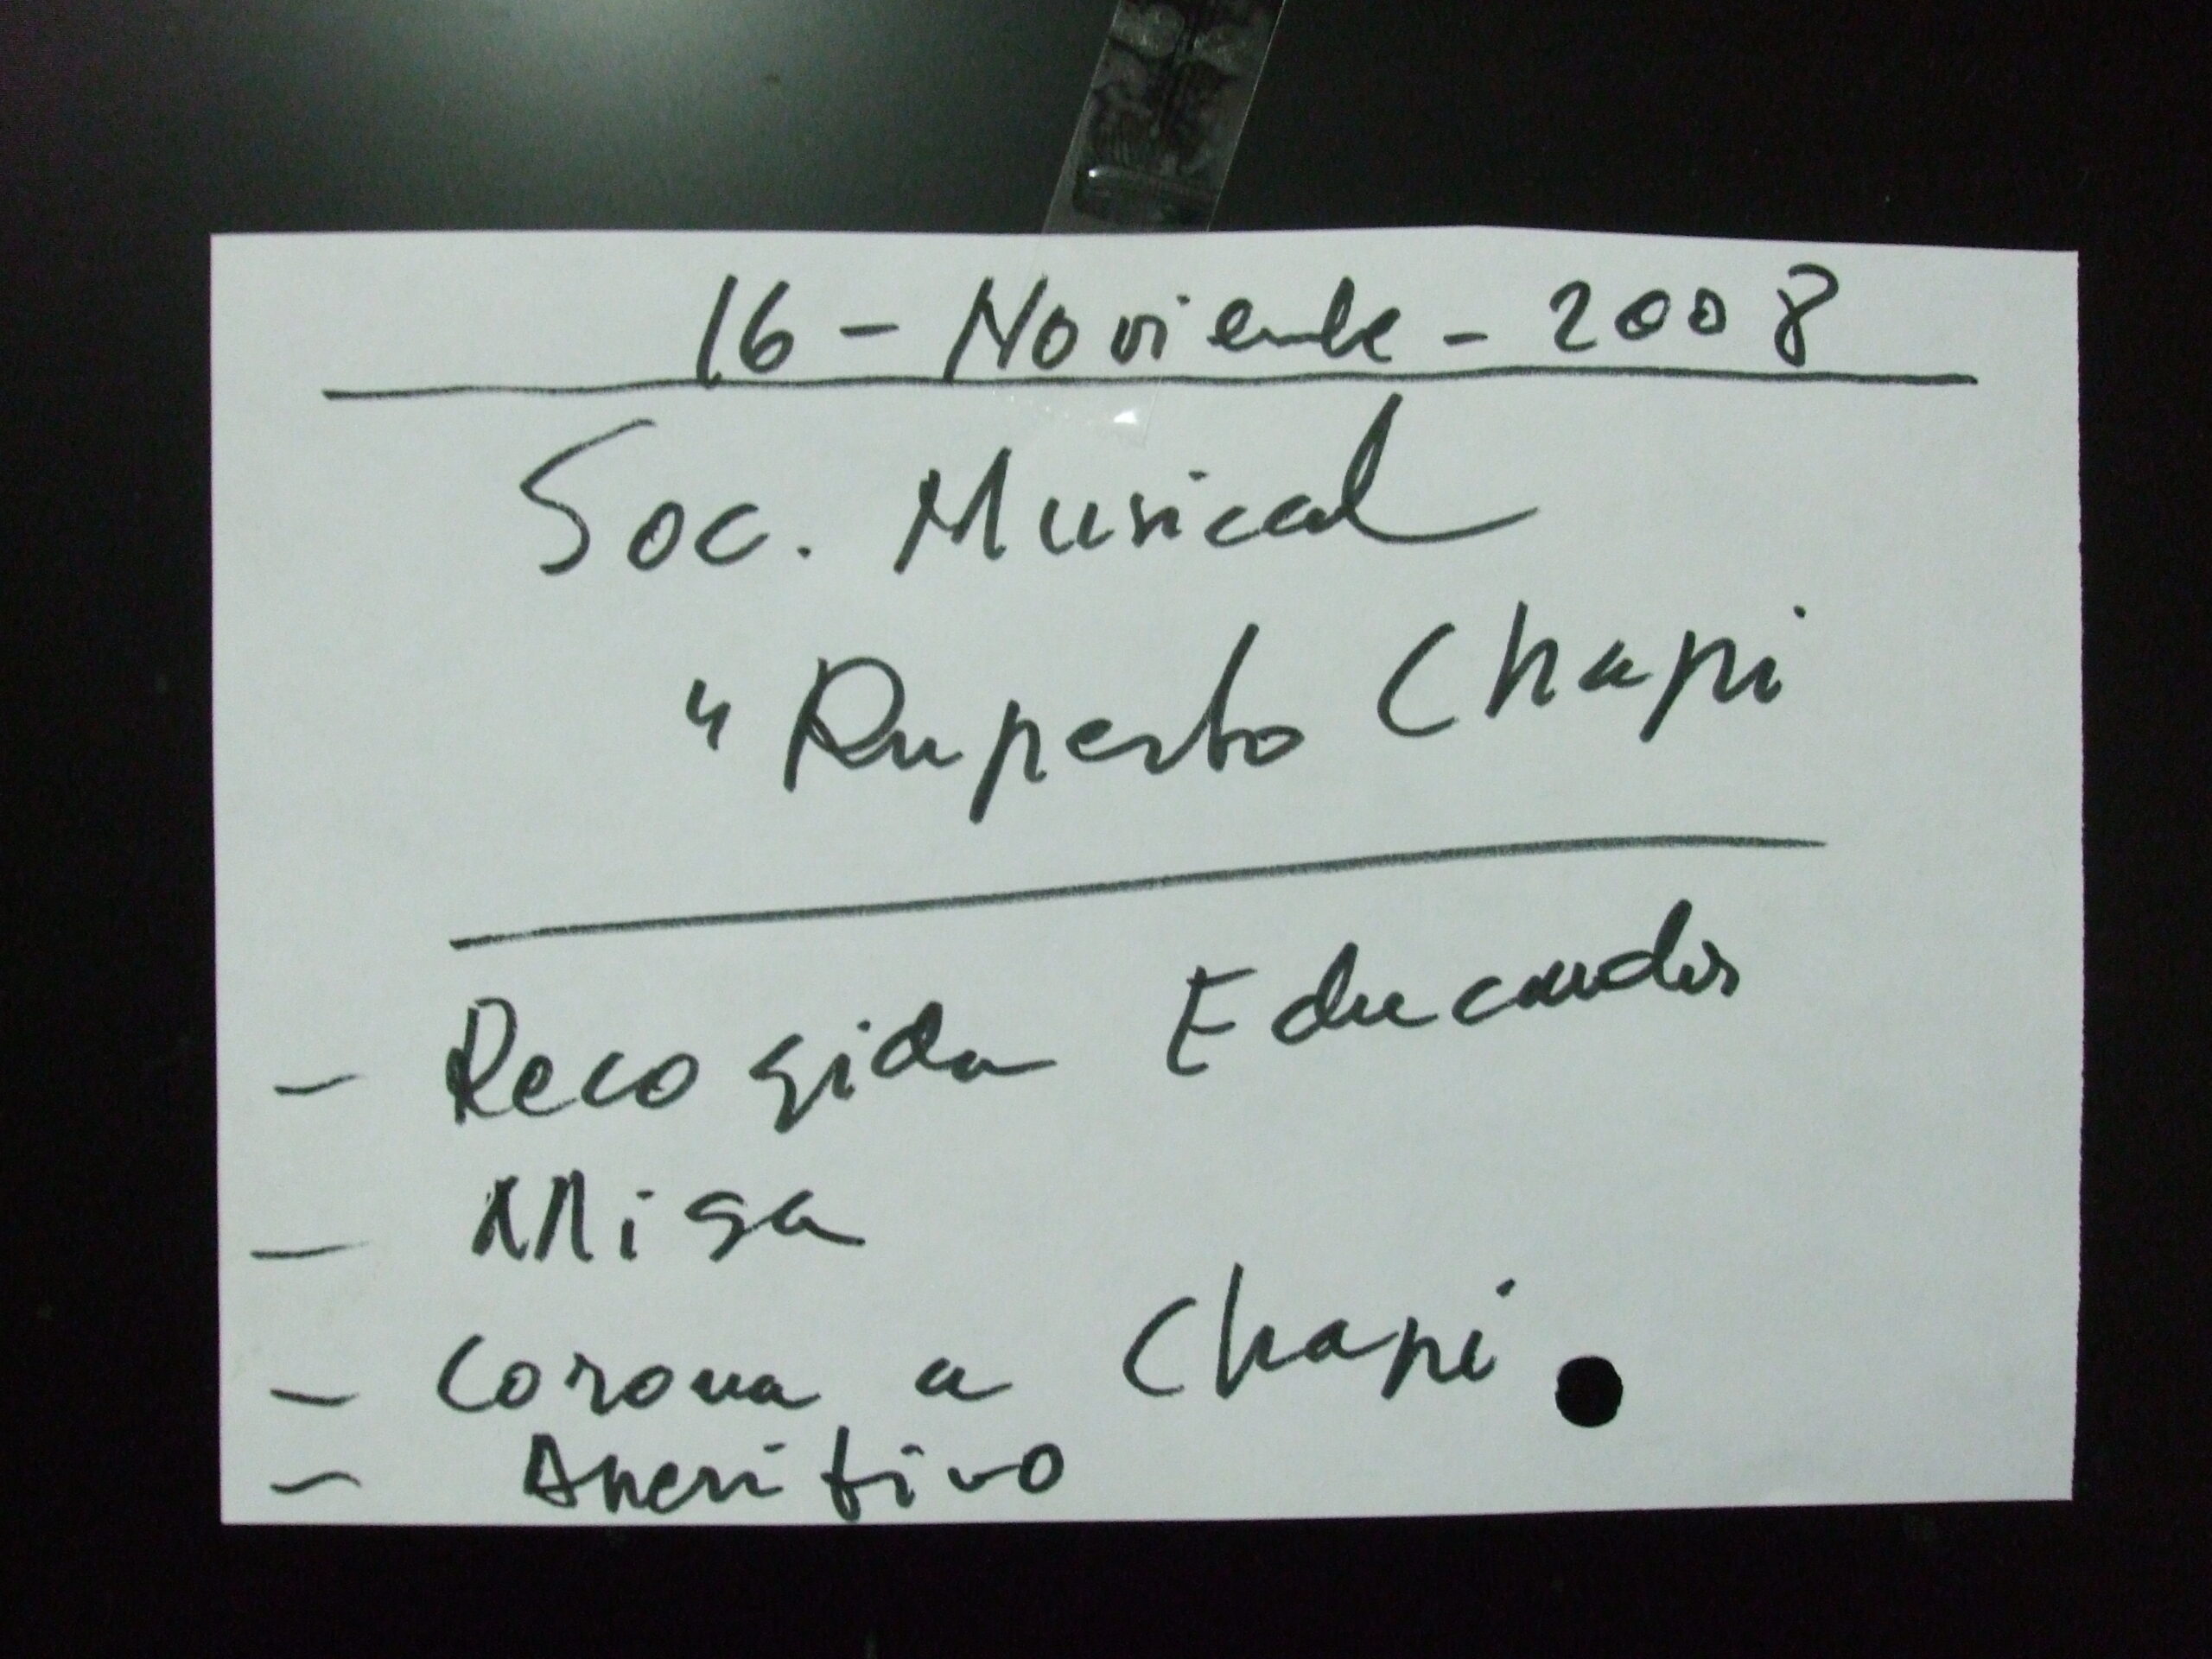 16 - Noviembre - 2008
Soc. Musical
" Ruperto Chapi
- Recogida Educandos
- Misa
- Corona a Chapi.
- Aperitivo